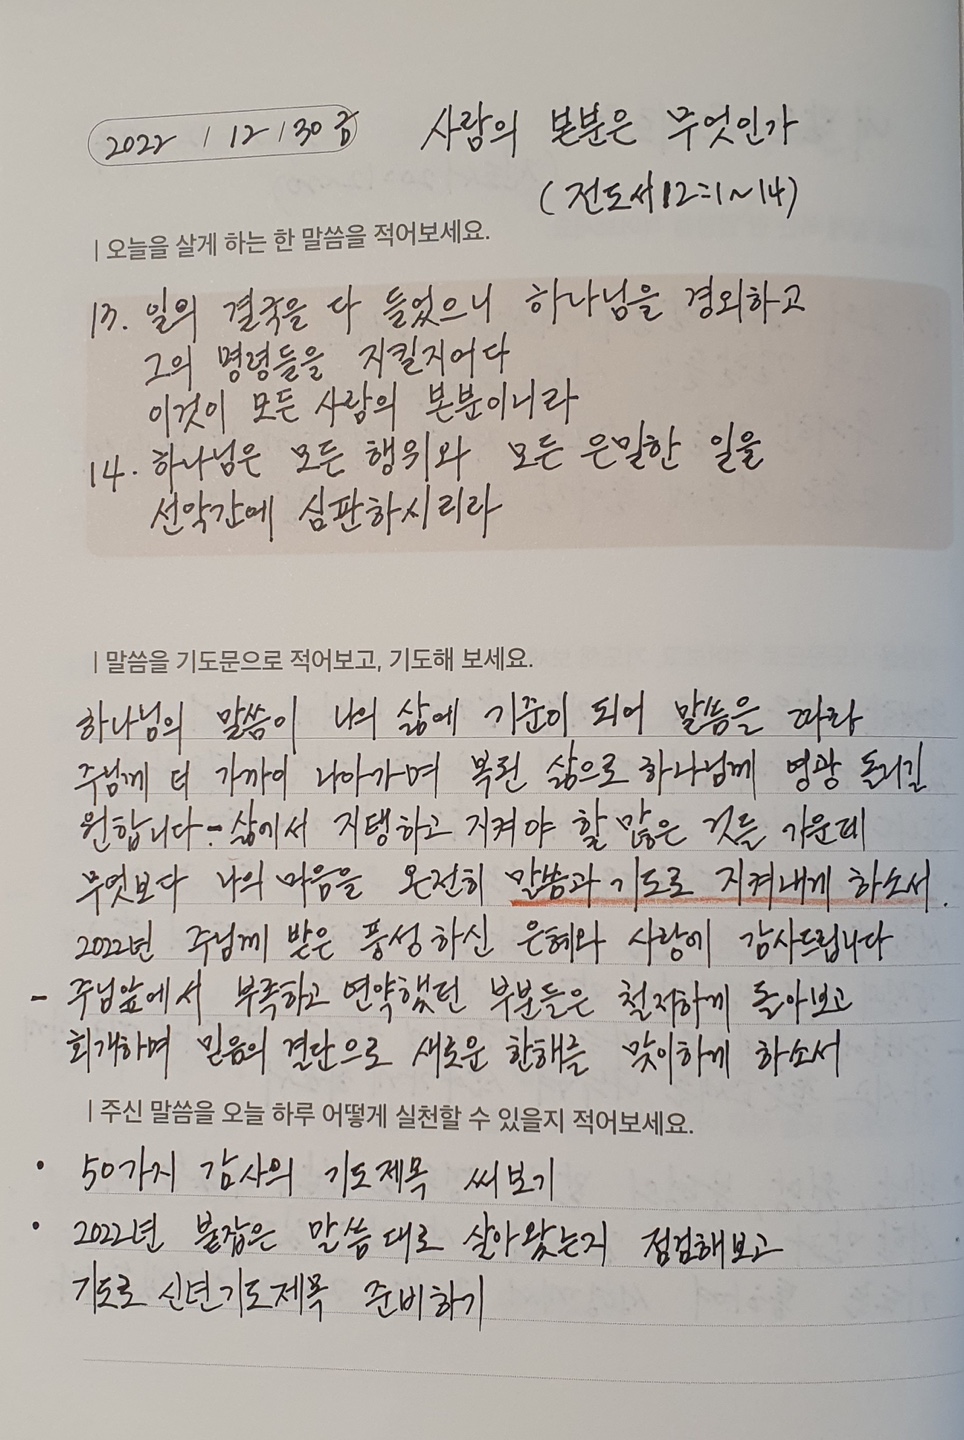 2022 / 12 / 30 금
사람의 본분은 무엇인가
(전도서 12:1~14)
| 오늘을 살게 하는 한 말씀을 적어보세요.
13. 일의 결국을 다 들었으니 하나님을 경외하고
그의 명령들을 지킬지어다
이것이 모든 사람의 본분이니라
14. 하나님은 모든 행위와 모든 은밀한 일을
선악간에 심판하시리라
| 말씀을 기도문으로 적어보고, 기도해 보세요.
하나님의 말씀이 나의 삶에 기준이 되어 말씀을 따라
주님께 더 가까이 나아가며 복된 삶으로 하나님께 영광 돌리길
원합니다 - 삶에서 지탱하고 지켜야 할 많은 것들 가운데
무엇보다 나의 마음을 온전히 말씀과 기도로 지켜내게 하소서.
2022년 주님께 받은 풍성하신 은혜와 사랑에 감사드립니다
- 주님앞에서 부족하고 연약했던 부분들은 철저하게 돌아보고
회개하며 믿음의 결단으로 새로운 한해를 맞이하게 하소서
| 주신 말씀을 오늘 하루 어떻게 실천할 수 있을지 적어보세요.
• 50가지 감사의 기도제목 써보기
• 2022년 붙잡은 말씀대로 살아왔는지 점검해보고
기도로 신년기도제목 준비하기